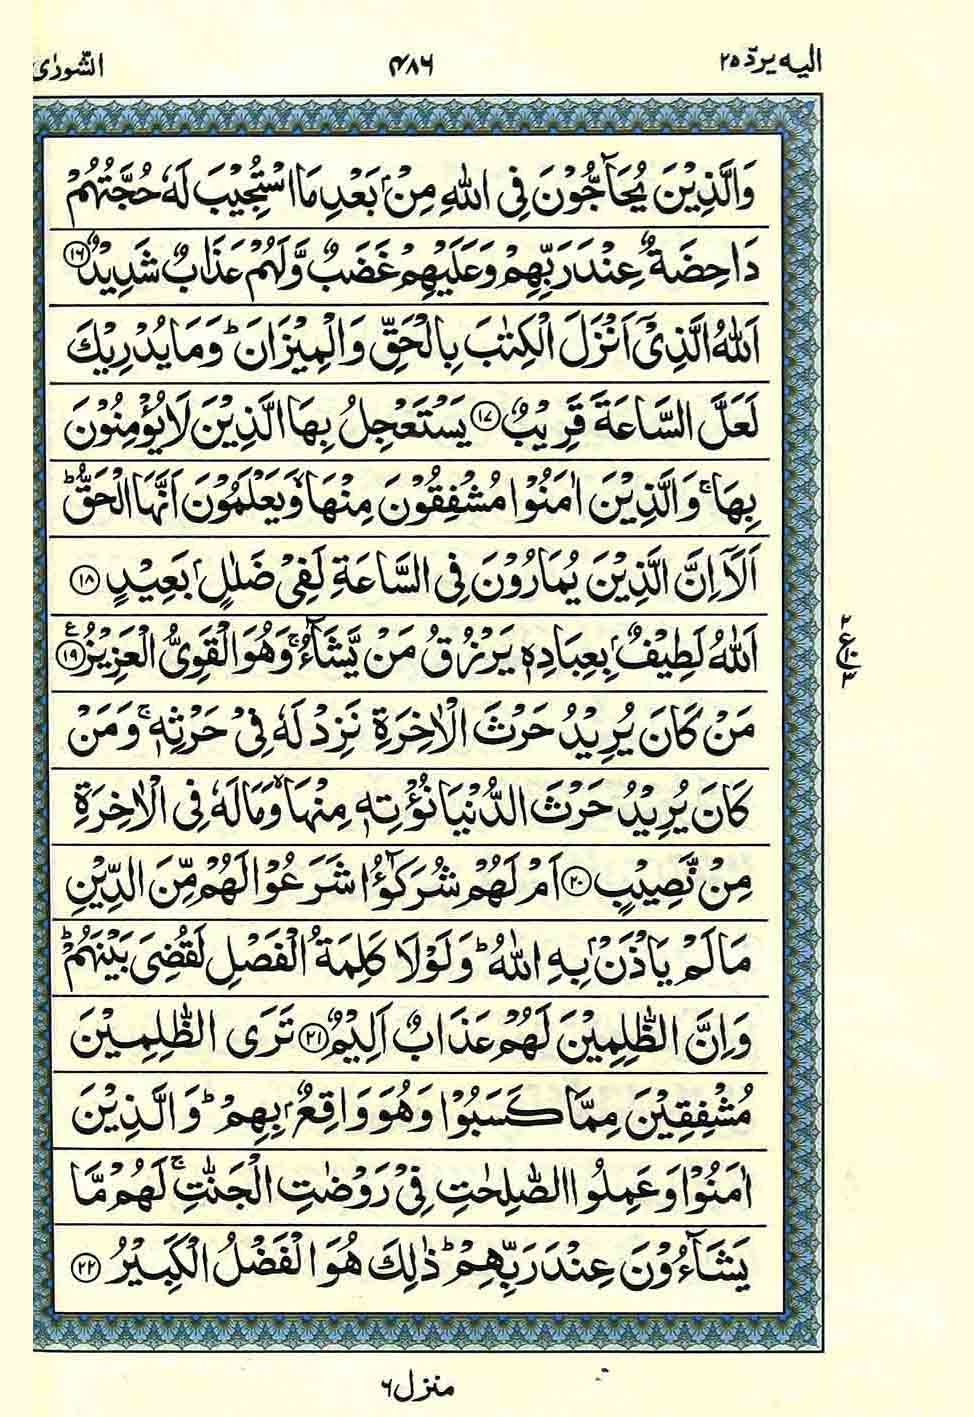 الیه یردّ ۲۵
۴۸۶
الشّورٰی
وَالَّذِیْنَ یُحَآجُّوْنَ فِی اللّٰهِ مِنْۢ بَعْدِ مَا اسْتُجِیْبَ لَهٗ حُجَّتُهُمْ
دَاحِضَةٌ عِنْدَ رَبِّهِمْ وَعَلَیْهِمْ غَضَبٌ وَّلَهُمْ عَذَابٌ شَدِیْدٌ ﴿۱۶﴾
اَللّٰهُ الَّذِیْۤ اَنْزَلَ الْكِتٰبَ بِالْحَقِّ وَالْمِیْزَانَ ؕ وَمَا یُدْرِیْكَ
لَعَلَّ السَّاعَةَ قَرِیْبٌ ﴿۱۷﴾ یَسْتَعْجِلُ بِهَا الَّذِیْنَ لَا یُؤْمِنُوْنَ
بِهَا ۚ وَالَّذِیْنَ اٰمَنُوْا مُشْفِقُوْنَ مِنْهَا ۙ وَیَعْلَمُوْنَ اَنَّهَا الْحَقُّ ؕ
اَلَاۤ اِنَّ الَّذِیْنَ یُمَارُوْنَ فِی السَّاعَةِ لَفِیْ ضَلٰلٍۭ بَعِیْدٍ ﴿۱۸﴾
اَللّٰهُ لَطِیْفٌۢ بِعِبَادِهٖ یَرْزُقُ مَنْ یَّشَآءُ ۚ وَهُوَ الْقَوِیُّ الْعَزِیْزُ ﴿۱۹﴾ ع
۲ ع ۱۰ ۳
مَنْ كَانَ یُرِیْدُ حَرْثَ الْاٰخِرَةِ نَزِدْ لَهٗ فِیْ حَرْثِهٖ ۚ وَمَنْ
كَانَ یُرِیْدُ حَرْثَ الدُّنْیَا نُؤْتِهٖ مِنْهَا ۙ وَمَا لَهٗ فِی الْاٰخِرَةِ
مِنْ نَّصِیْبٍ ﴿۲۰﴾ اَمْ لَهُمْ شُرَكٰٓؤُا شَرَعُوْا لَهُمْ مِّنَ الدِّیْنِ
مَا لَمْ یَاْذَنْۢ بِهِ اللّٰهُ ؕ وَلَوْلَا كَلِمَةُ الْفَصْلِ لَقُضِیَ بَیْنَهُمْ ؕ
وَاِنَّ الظّٰلِمِیْنَ لَهُمْ عَذَابٌ اَلِیْمٌ ﴿۲۱﴾ تَرَی الظّٰلِمِیْنَ
مُشْفِقِیْنَ مِمَّا كَسَبُوْا وَهُوَ وَاقِعٌۢ بِهِمْ ؕ وَالَّذِیْنَ
اٰمَنُوْا وَعَمِلُوا الصّٰلِحٰتِ فِیْ رَوْضٰتِ الْجَنّٰتِ ۚ لَهُمْ مَّا
یَشَآءُوْنَ عِنْدَ رَبِّهِمْ ؕ ذٰلِكَ هُوَ الْفَضْلُ الْكَبِیْرُ ﴿۲۲﴾
منزل ۶